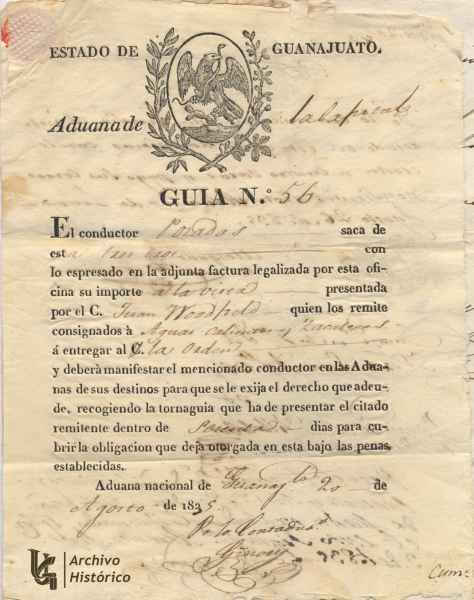 ESTADO DE GUANAJUATO.
Aduana de la capital
GUIA N.º 56
El conductor Posadas saca de
esta con
lo espresado en la adjunta factura legalizada por esta ofi-
cina su importe a la vuelta presentada
por el C. Juan Woodfield quien los remite
consignados à Aguas calientes y Zacatecas
á entregar al C. las Ordens
y deberà manifestar el mencionado conductor en las Adua-
nas de sus destinos para que se le exija el derecho que adeu-
de, recogiendo la tornaguia que ha de presentar el citado
remitente dentro de dias para cu-
brir la obligacion que deja otorgada en esta bajo las penas
establecidas.
Aduana nacional de Guanajto 20 de
Agosto de 1835
Archivo
Histórico